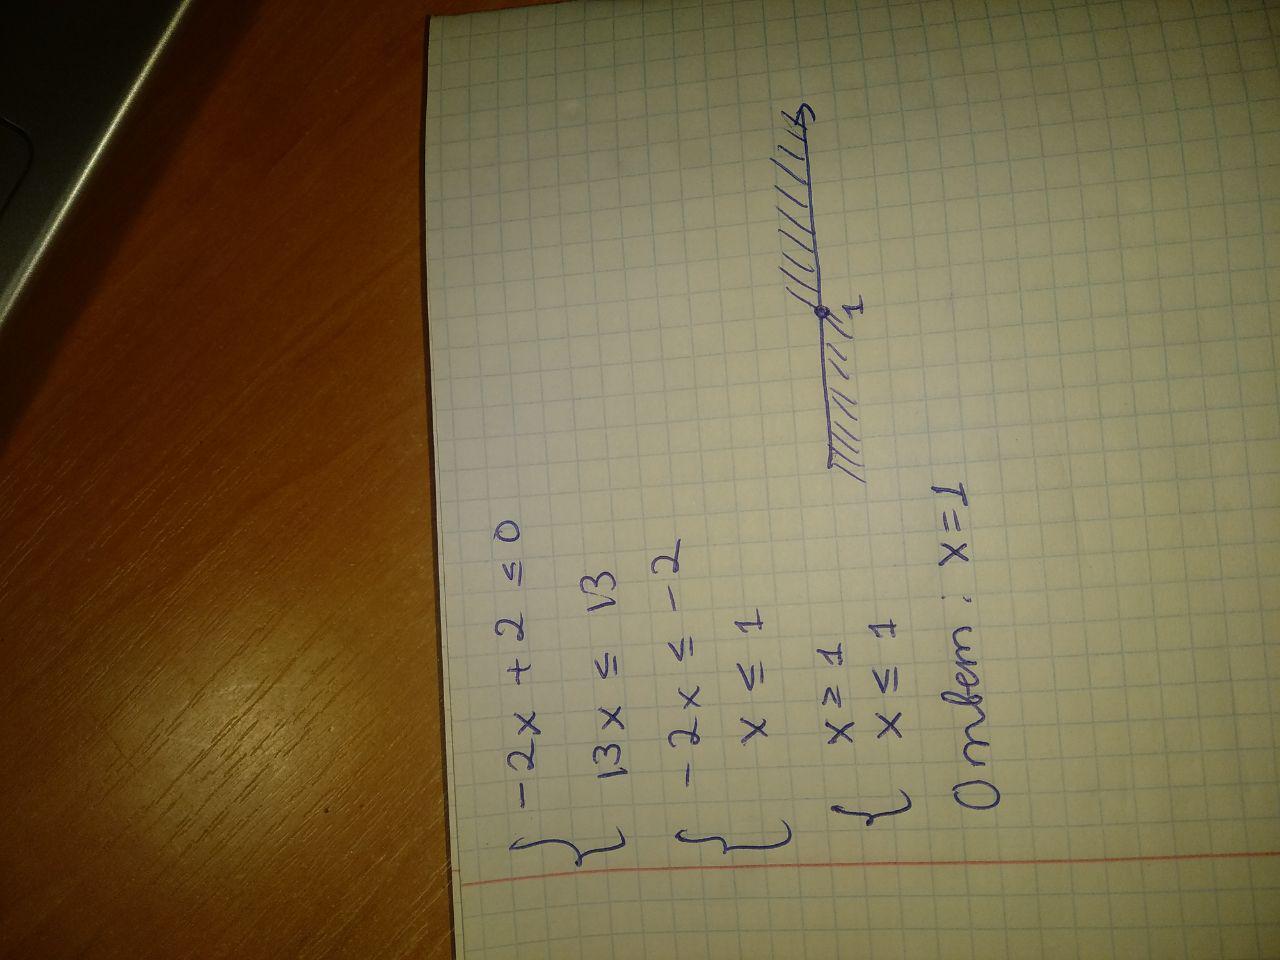 { -2x + 2 ≤ 0
13x ≤ 13
{ -2x ≤ -2
x ≤ 1
{ x ≥ 1
x ≤ 1
1
Ответ: x=1